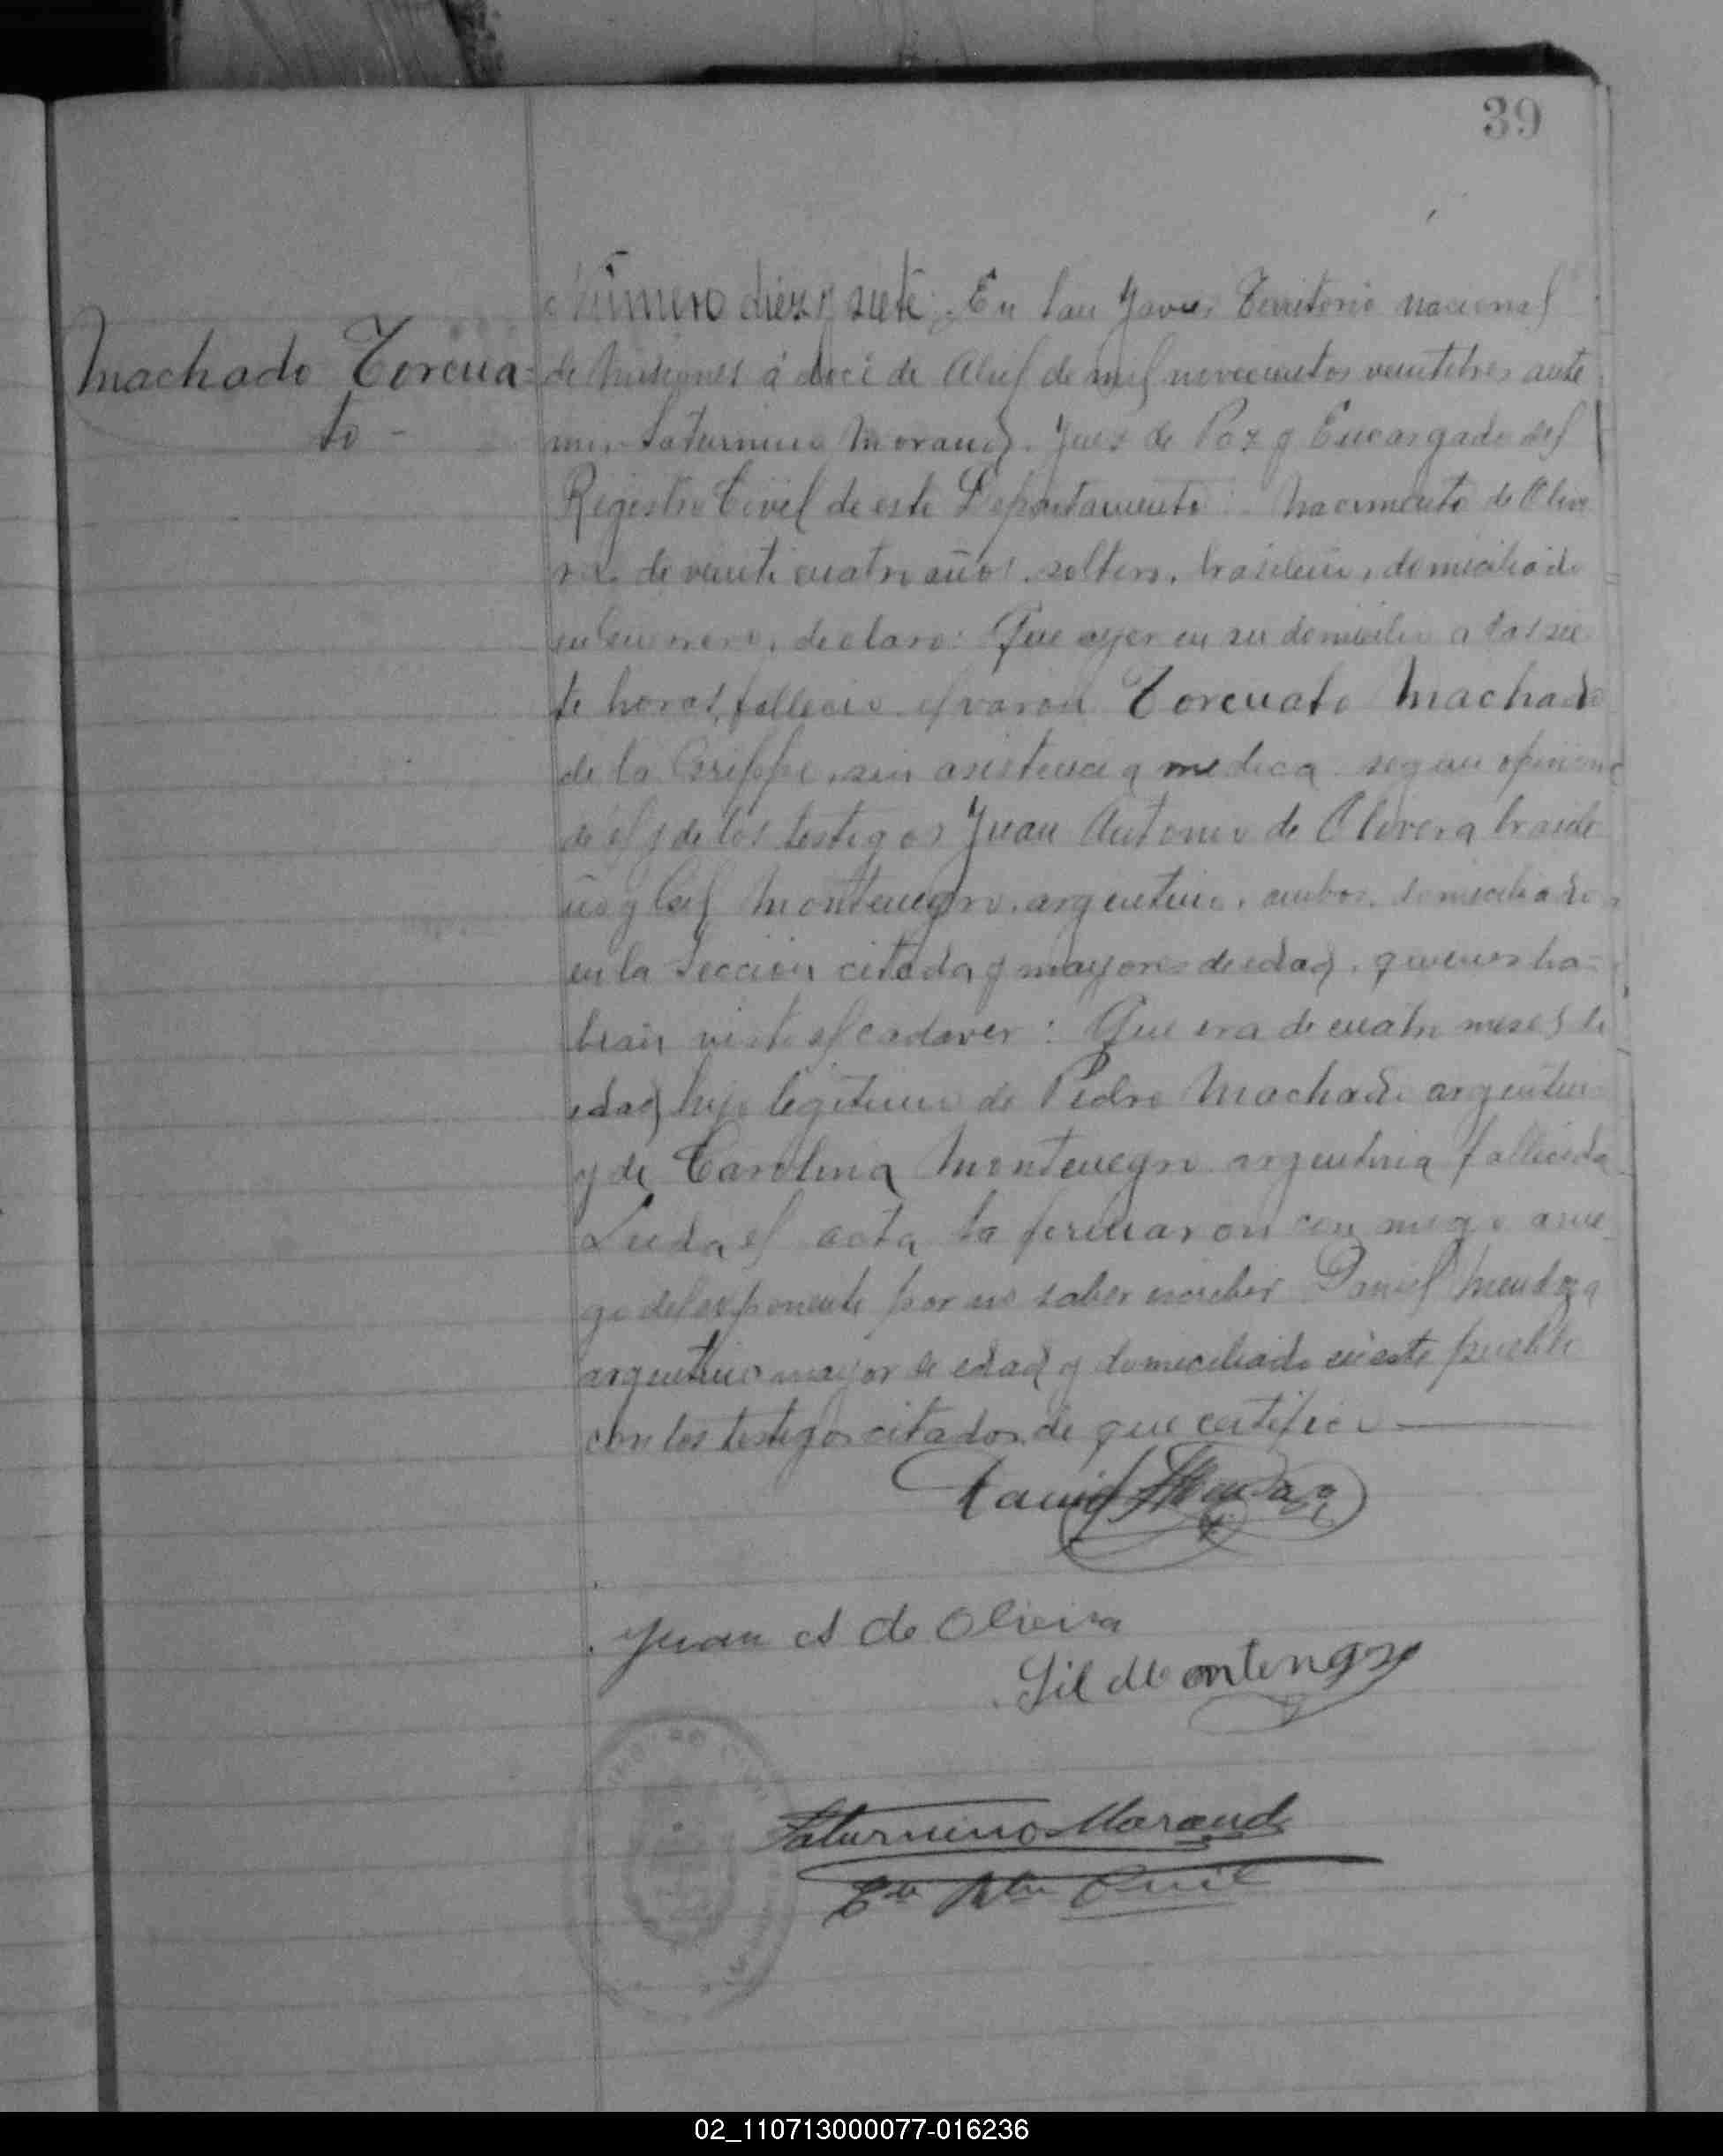 39
Machado Torcua=
to -
Número diez y siete: En San Javier Territorio nacional
de Misiones á doce de Abril de mil novecientos veintitres ante
mi, Saturnino Morand, Juez de Paz y Encargado del
Registro Civil de este Departamento: Nacimiento de Olive
ra, de veinti cuatro años, soltero, brasileño, domiciliado
en Guerrero, declaro: Que ayer en su domicilio a las sie
te horas, fallecio el varon Torcuato Machado
de la Grippe, sin asistencia medica segun opinion
de el y de los testigos Juan Antonio de Olivera brasile
ño y Gil Montenegro, argentino, ambos domiciliados
en la Seccion citada y mayores de edad, quienes ha=
bian visto el cadaver: Que era de cuatro meses de
edad, hijo legitimo de Pedro Machado argentino
y de Carolina Montenegro argentina fallecida
Leida el acta la firmaron con migo a rue
go del esponente por no saber escribir Daniel Mendoza
argentino mayor de edad y domiciliado en este pueblo
con los testigos citados de que certifico
Daniel Mendoza
Juan A de Olieira
Gil Montengro
Saturnino Morand
Edo Rtro Civil
02_110713000077-016236